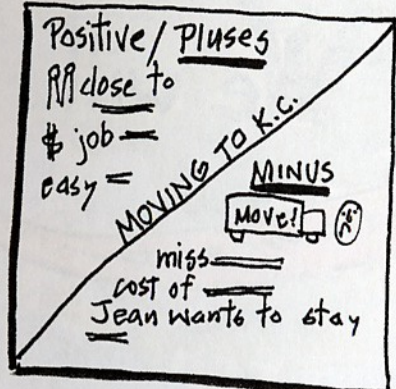 Positive/Pluses
close to
$ job
easy
MOVING TO K.C.
MINUS
Move!
miss
cost of
Jean wants to stay